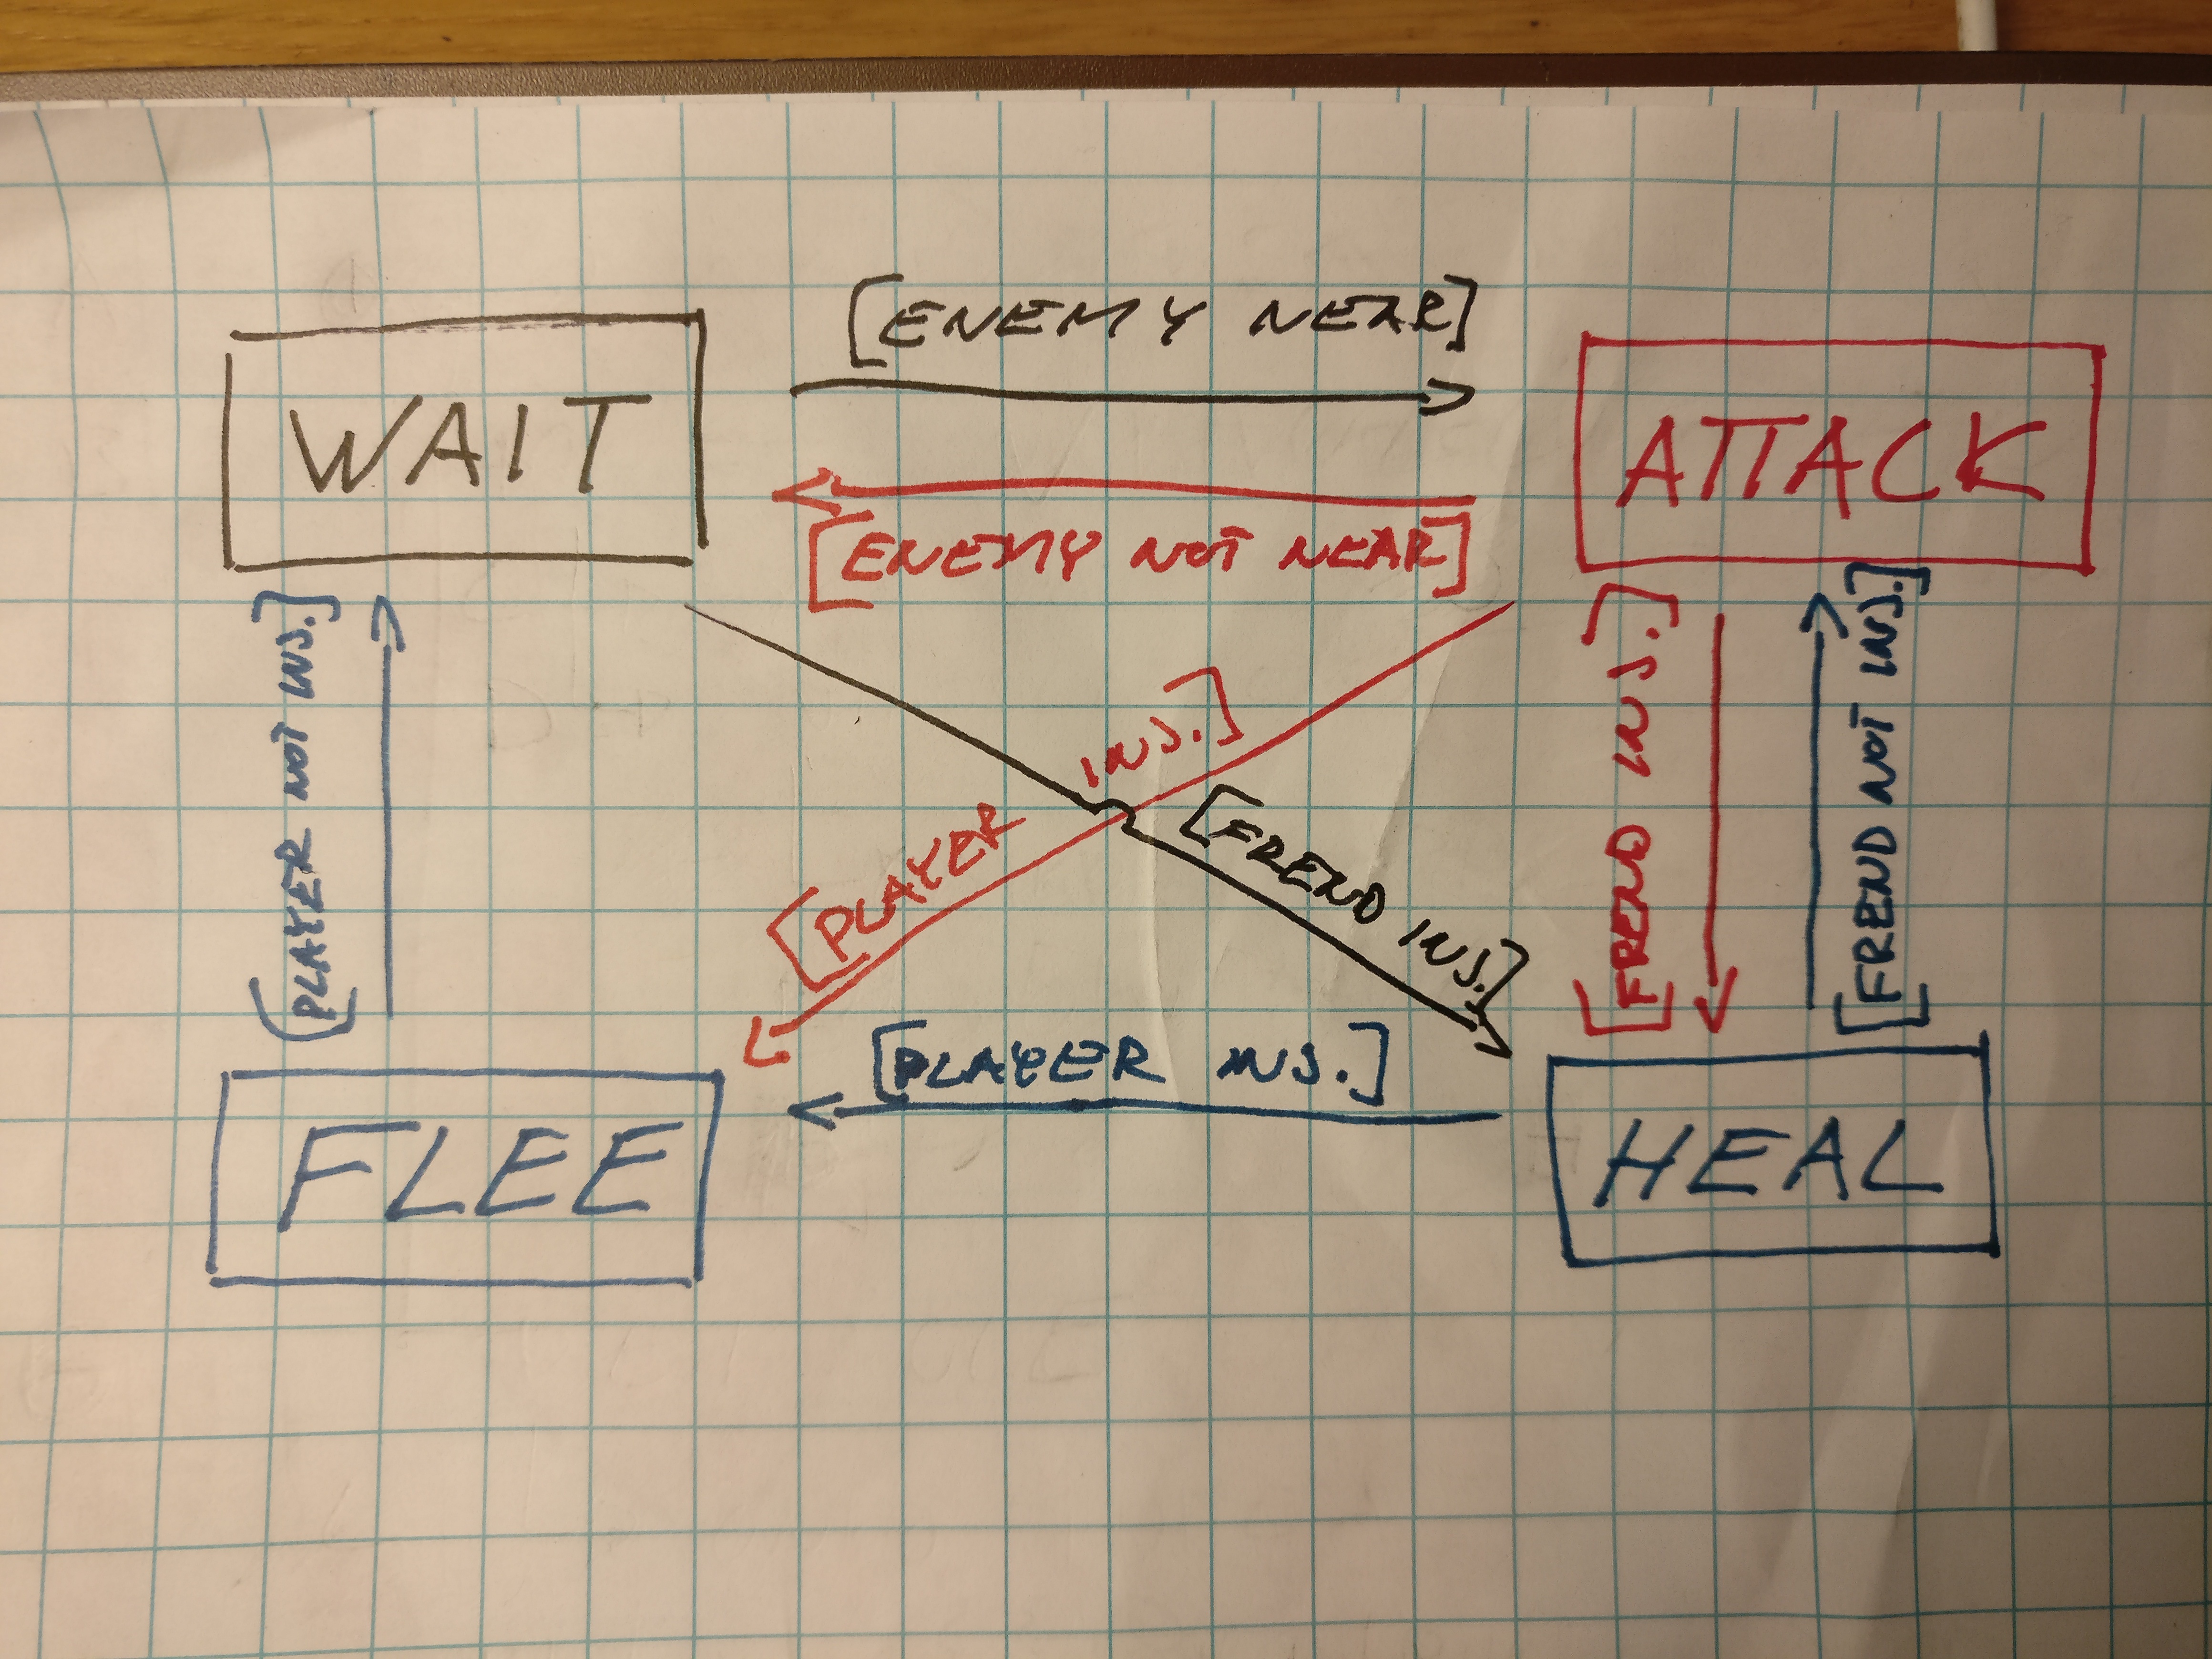 [ENEMY NEAR]
WAIT
ATTACK
[ENEMY NOT NEAR]
[PLAYER NOT INJ.]
[PLAYER INJ.]
[FREND INJ.]
[FREND INJ.]
[FREND NOT INJ.]
[PLAYER INJ.]
FLEE
HEAL